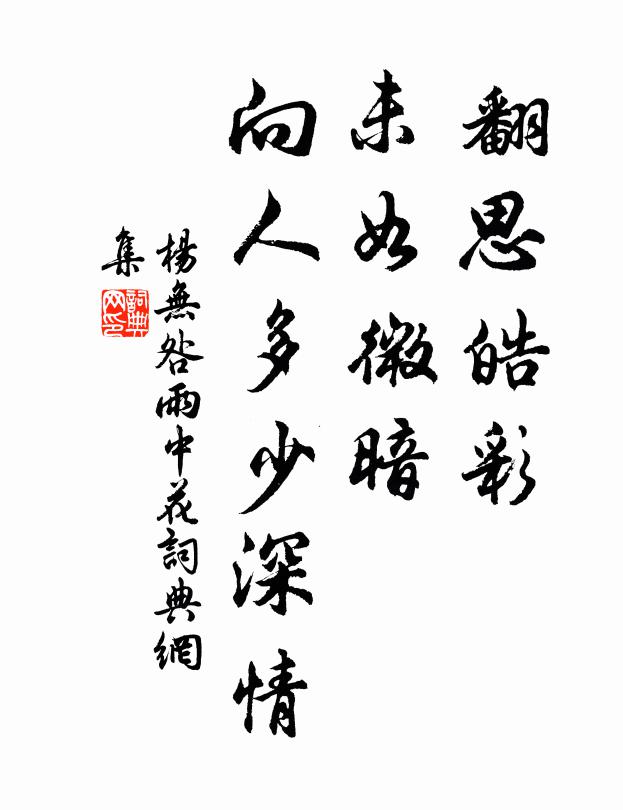 翻思皓彩
未如微暗
向人多少深情
楊無咎雨中花詞典網
集
詞典
网印